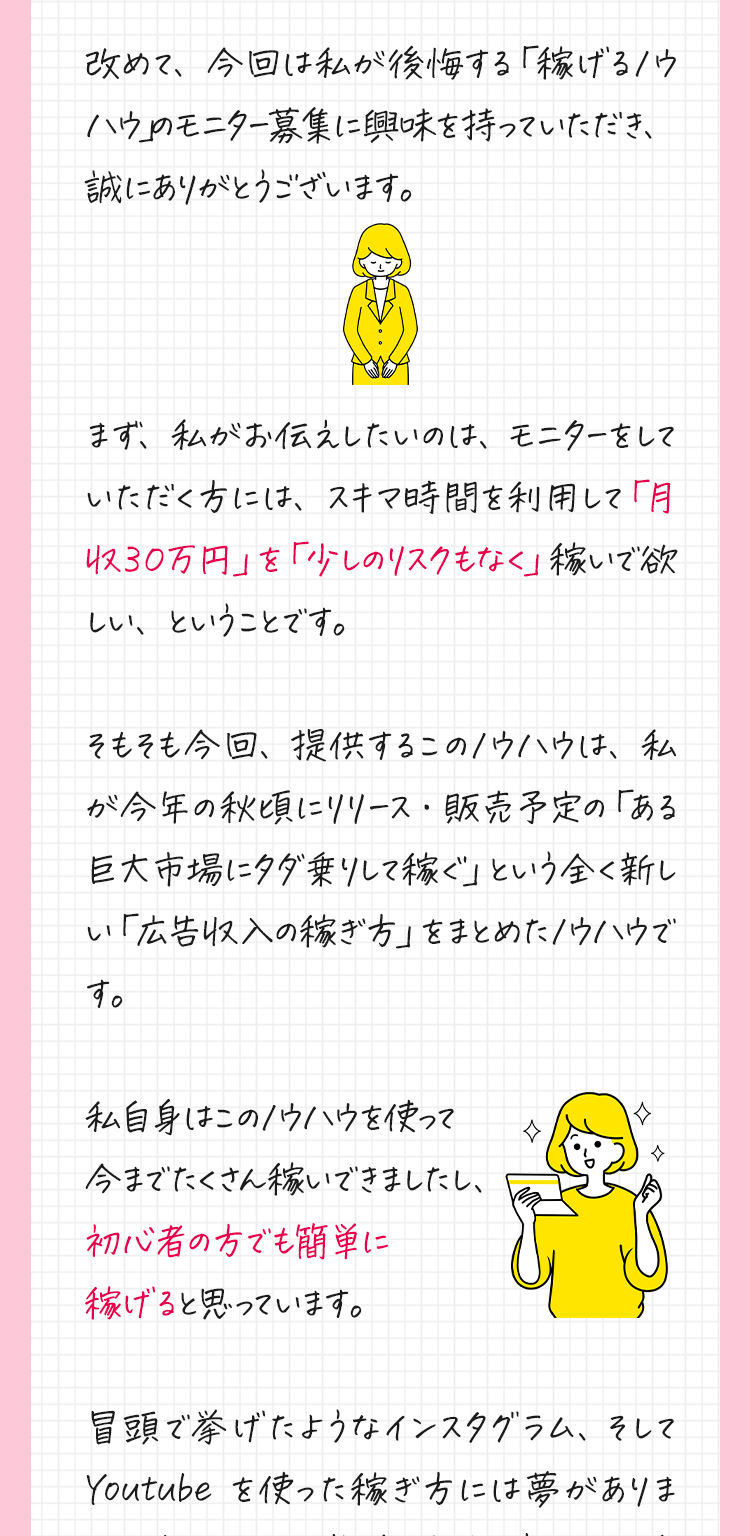 改めて、今回は私が後悔する「稼げるノウ
ハウ」のモニター募集に興味を持っていただき、
誠にありがとうございます。
まず、私がお伝えしたいのは、モニターをして
いただく方には、スキマ時間を利用して「月
収30万円」を「少しのリスクもなく」稼いで欲
しい、ということです。
そもそも今回、提供するこのノウハウは、私
が今年の秋頃にリリース・販売予定の「ある
巨大市場にタダ乗りして稼ぐ」という全く新し
い「広告収入の稼ぎ方」をまとめたノウハウで
す。
私自身はこのノウハウを使って
今までたくさん稼いできましたし、
初心者の方でも簡単に
稼げると思っています。
冒頭で挙げたようなインスタグラム、そして
Youtube を使った稼ぎ方には夢がありま